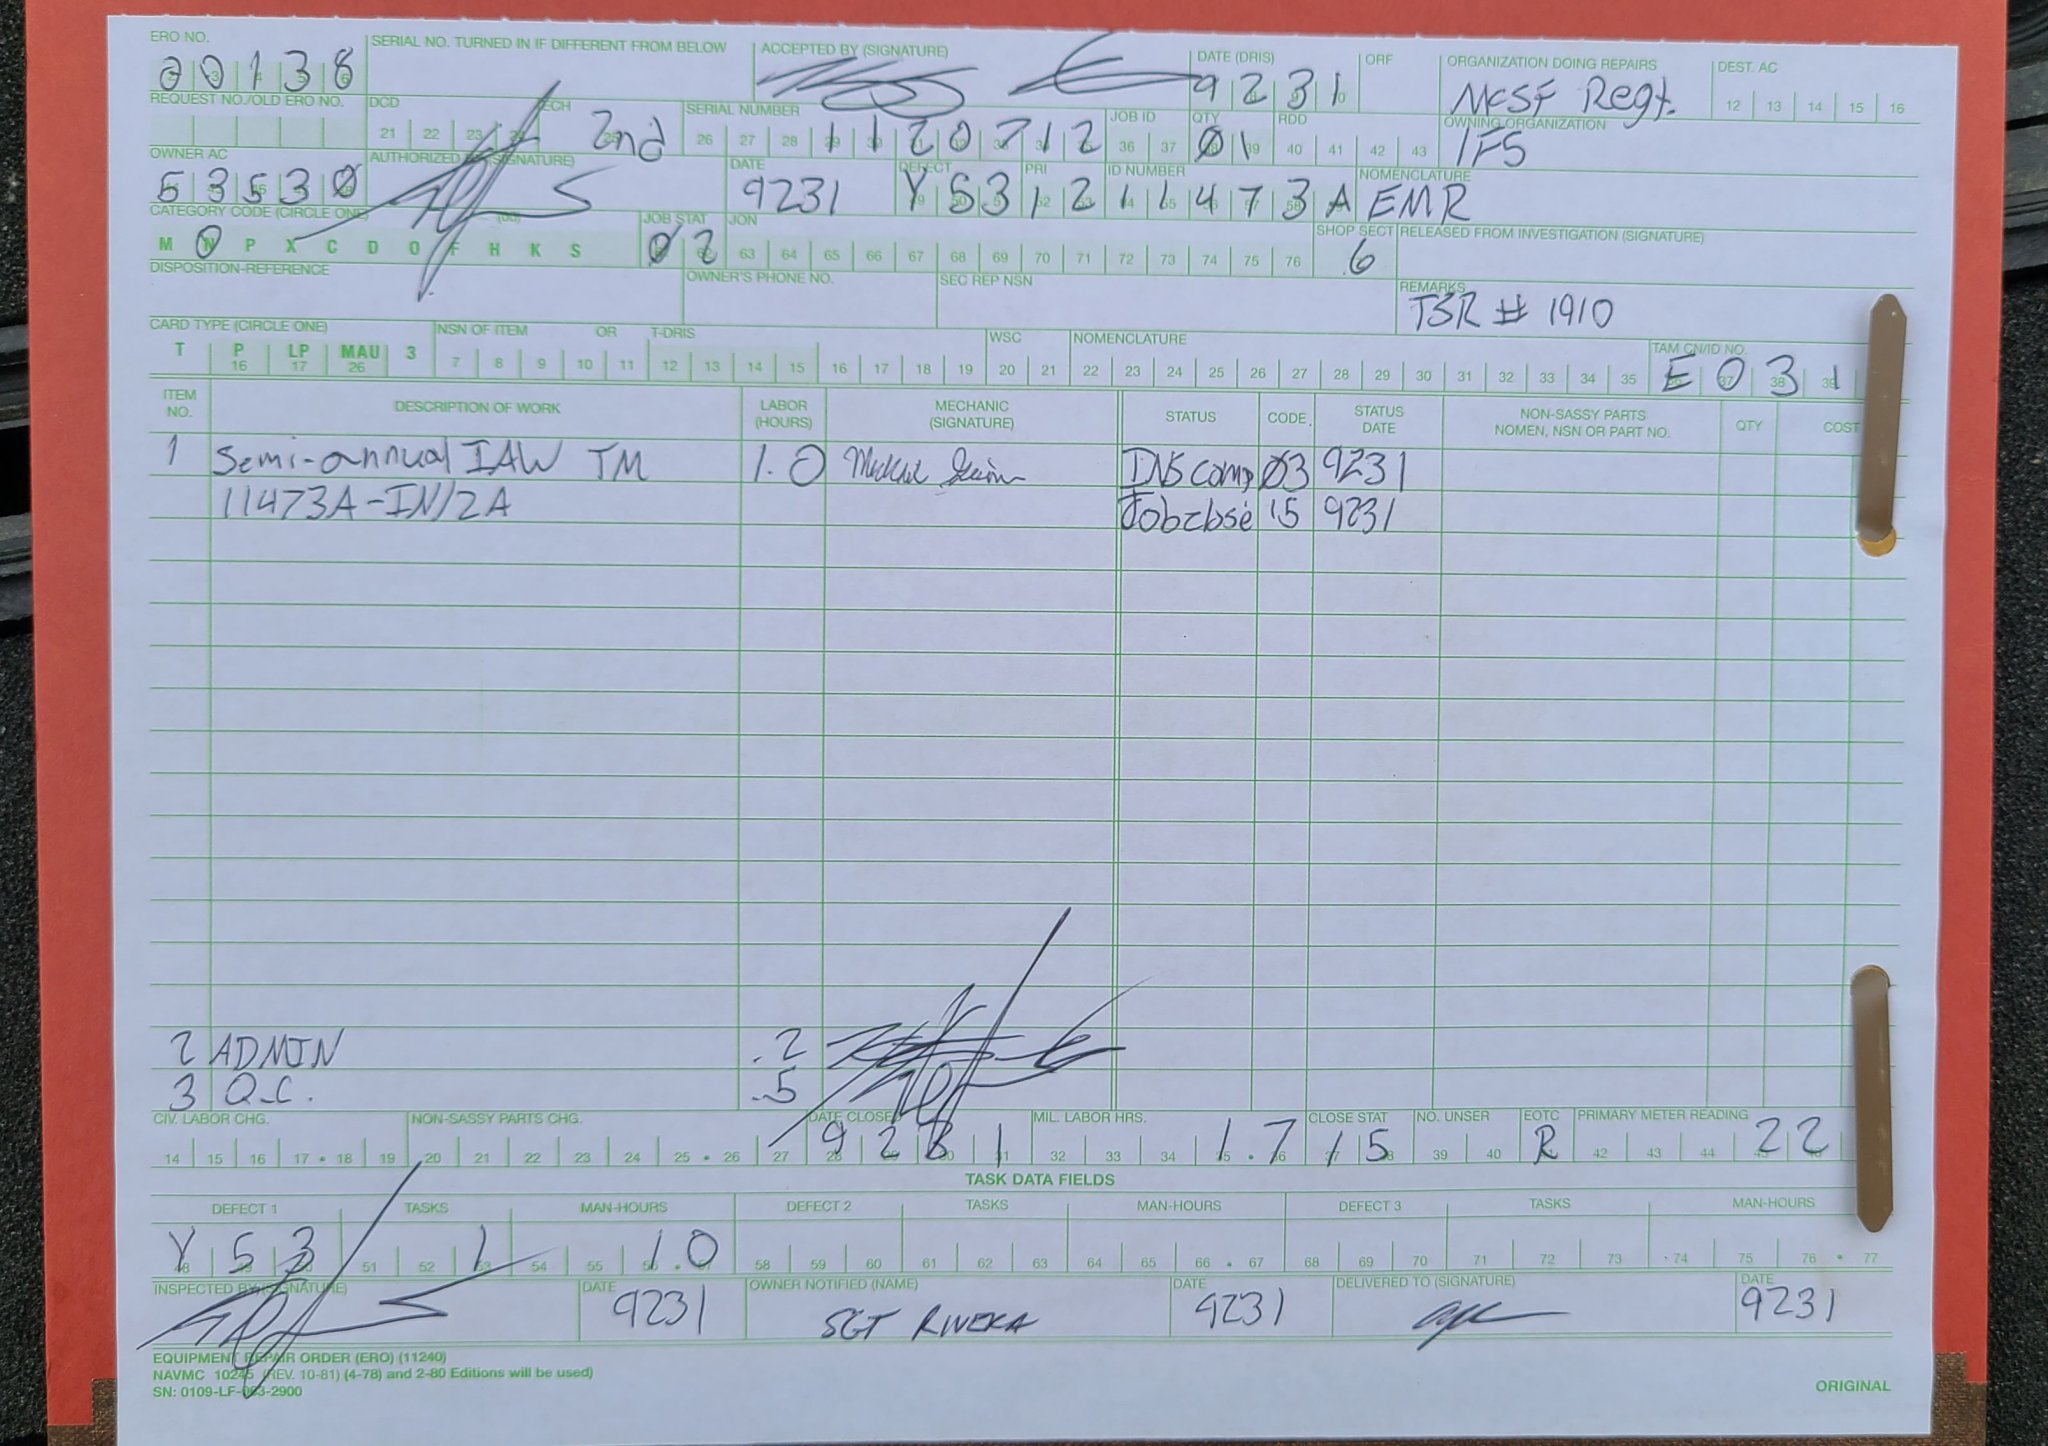 ERO NO. SERIAL NO. TURNED IN IF DIFFERENT FROM BELOW ACCEPTED BY (SIGNATURE) DATE (DRIS) ORF ORGANIZATION DOING REPAIRS DEST. AC
20138 9231 MCSF Regt. 12 13 14 15 16
REQUEST NO./OLD ERO NO. DCD ECH SERIAL NUMBER JOB ID QTY RDD OWNING ORGANIZATION
21 22 23 2nd 26 27 28 1120712 36 37 01 40 41 42 43 IFS
OWNER AC AUTHORIZED BY (SIGNATURE) DATE DEFECT PRI ID NUMBER NOMENCLATURE
53530 9231 Y53 12 11473A EMR
CATEGORY CODE (CIRCLE ONE) JOB STAT JON SHOP SECT RELEASED FROM INVESTIGATION (SIGNATURE)
M N P X C D O F H K S 02 63 64 65 66 67 68 69 70 71 72 73 74 75 76 6
DISPOSITION-REFERENCE OWNER'S PHONE NO. SEC REP NSN REMARKS
TSR # 1910
CARD TYPE (CIRCLE ONE) NSN OF ITEM OR T-DRIS WSC NOMENCLATURE TAM CN/ID NO.
T P LP MAU 3 7 8 9 10 11 12 13 14 15 16 17 18 19 20 21 22 23 24 25 26 27 28 29 30 31 32 33 34 35 E031
16 17 26
ITEM NO. DESCRIPTION OF WORK LABOR (HOURS) MECHANIC (SIGNATURE) STATUS CODE STATUS DATE NON-SASSY PARTS NOMEN, NSN OR PART NO. QTY COST
1 Semi-annual IAW TM 1.0 INS comp 03 9231
11473A-IN/2A Job close 15 9231
2 ADMIN .2
3 Q.C. .5
CIV. LABOR CHG. NON-SASSY PARTS CHG. DATE CLOSED MIL. LABOR HRS. CLOSE STAT NO. UNSER EOTC PRIMARY METER READING
14 15 16 17 . 18 19 20 21 22 23 24 25 . 26 27 9231 32 33 34 1.7 15 39 40 R 42 43 44 22
TASK DATA FIELDS
DEFECT 1 TASKS MAN-HOURS DEFECT 2 TASKS MAN-HOURS DEFECT 3 TASKS MAN-HOURS
Y53 51 52 1 54 55 1.0 58 59 60 61 62 63 64 65 66 . 67 68 69 70 71 72 73 74 75 76 . 77
INSPECTED BY (SIGNATURE) DATE OWNER NOTIFIED (NAME) DATE DELIVERED TO (SIGNATURE) DATE
9231 SGT 9231 9231
EQUIPMENT REPAIR ORDER (ERO) (11240)
NAVMC 10245 (REV. 10-81) (4-78) and 2-80 Editions will be used)
SN: 0109-LF-063-2900
ORIGINAL